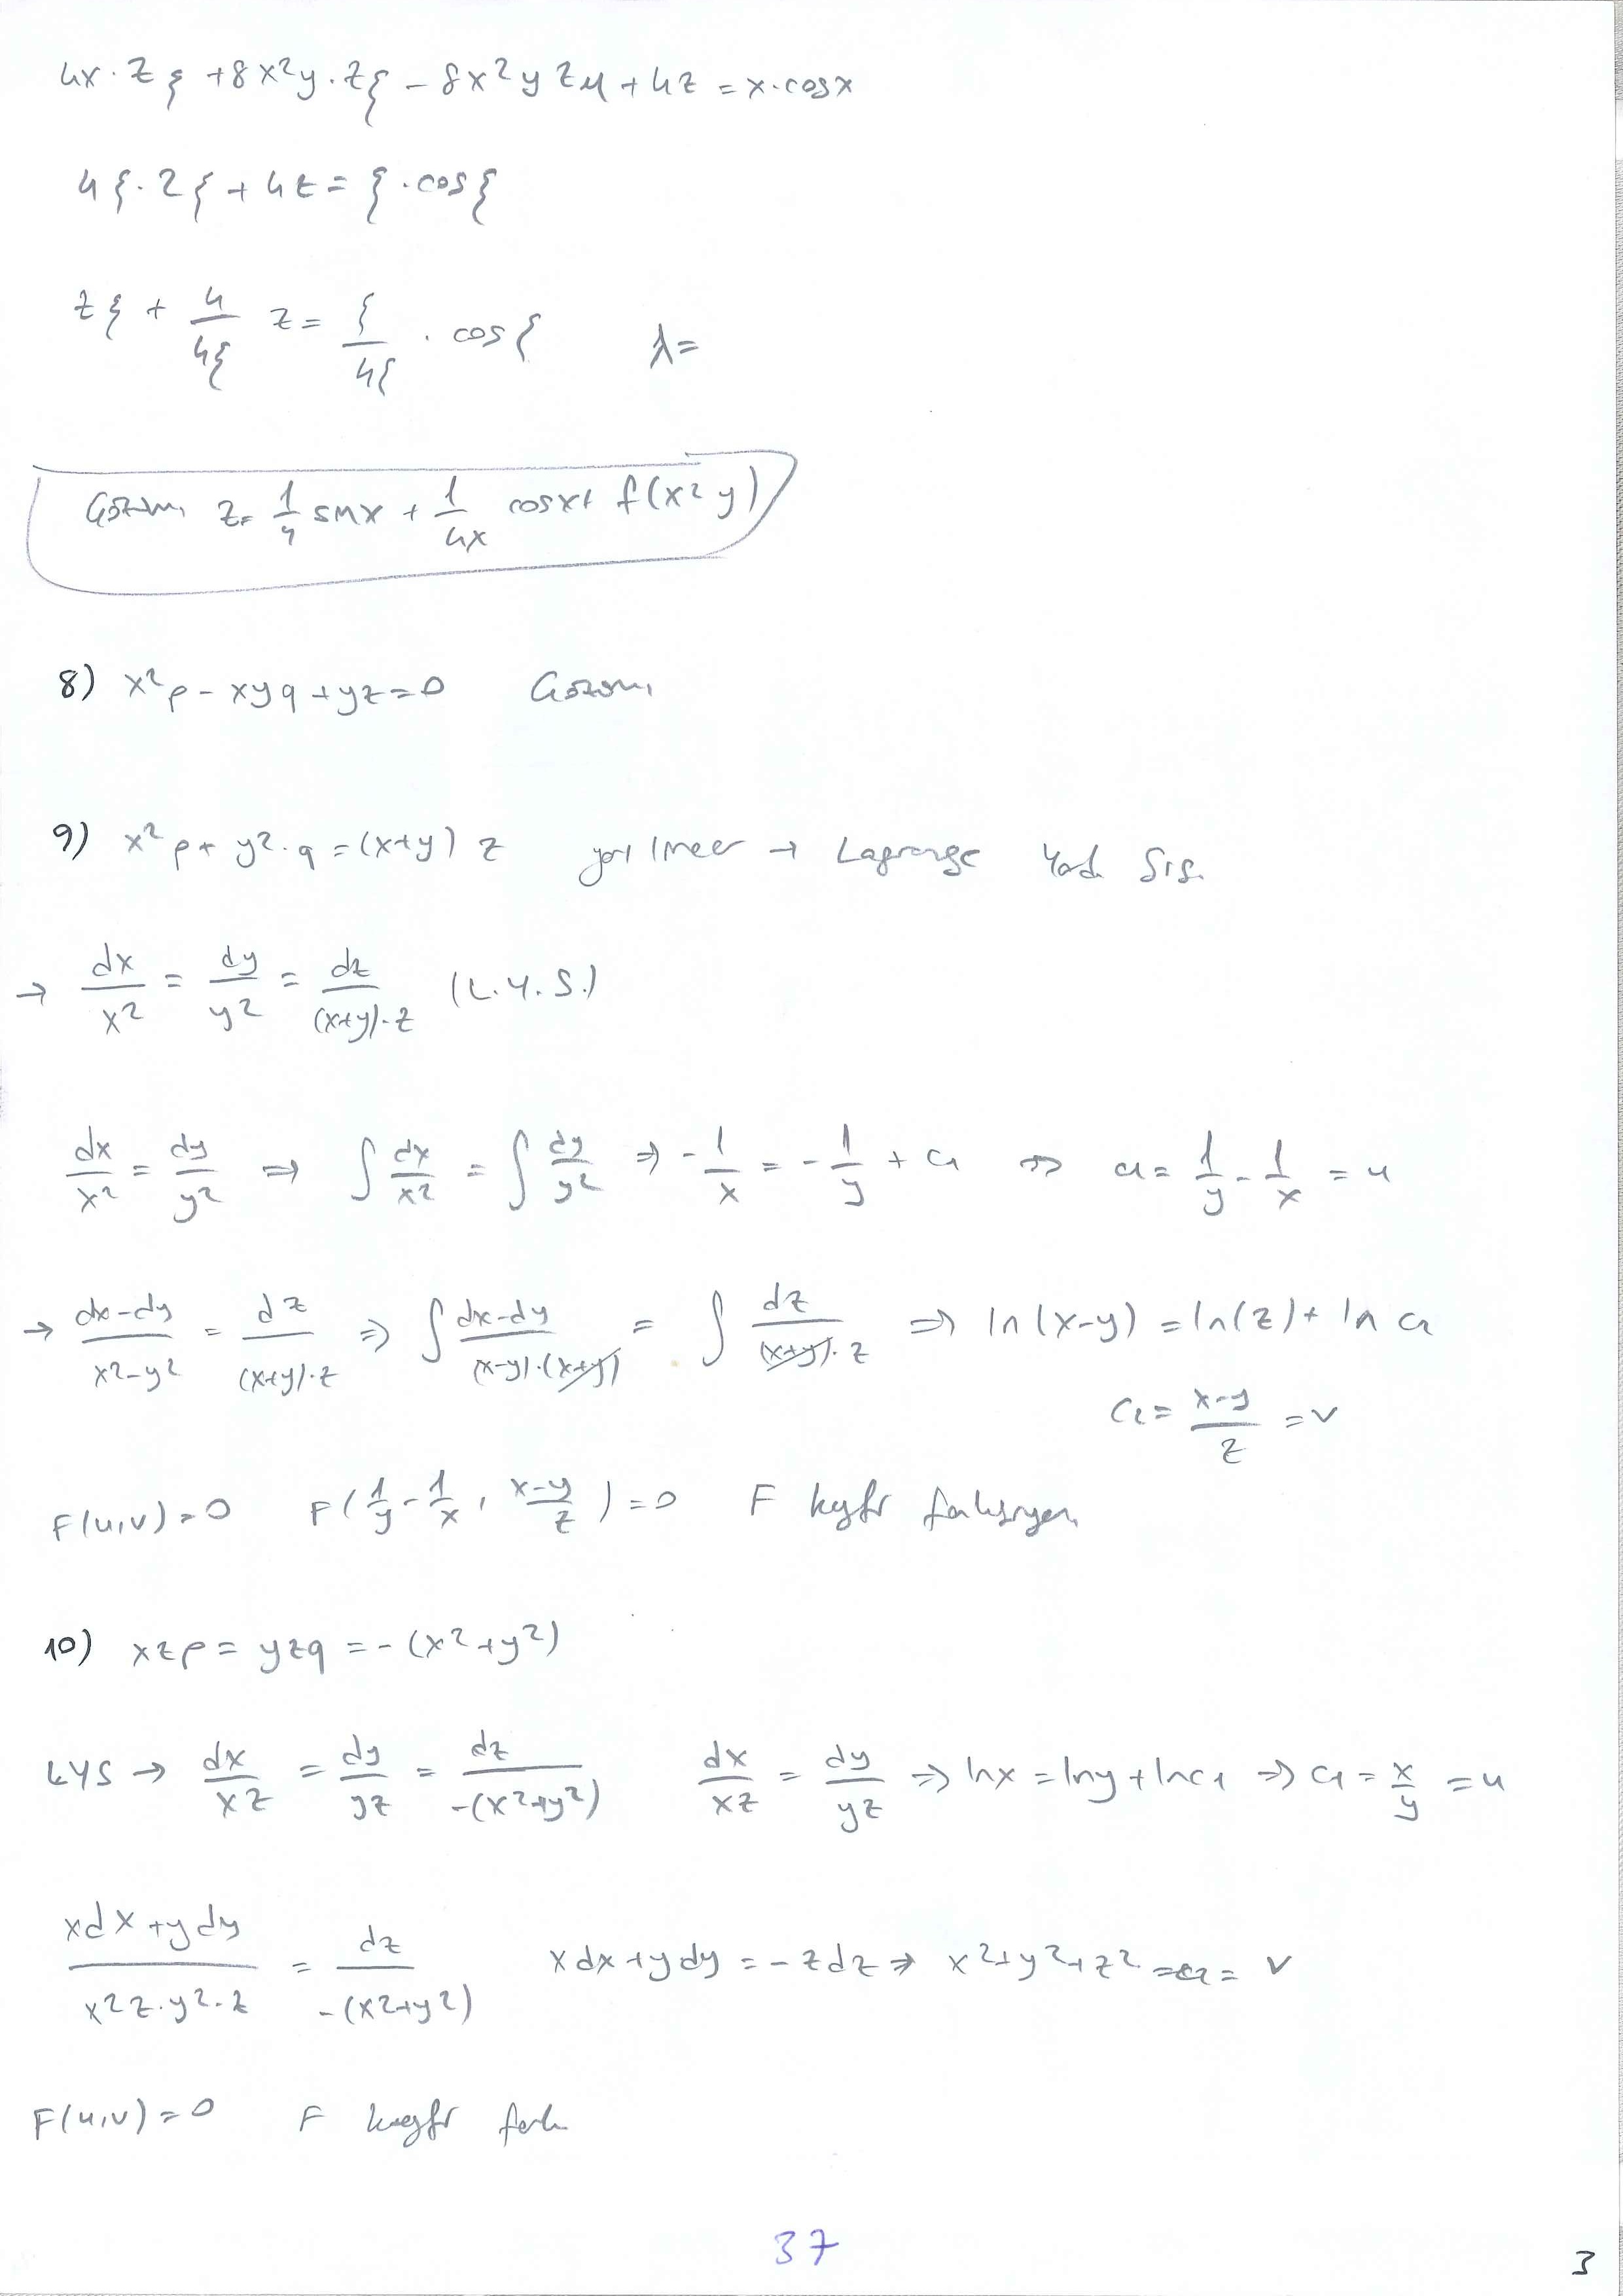 4x·zξ + 8x²y·zξ - 8x²y zμ + 4z = x·cosx
4ξ·zξ + 4z = ξ·cosξ
zξ + 4/4ξ z = ξ/4ξ · cosξ λ=
Çözüm z = 1/4 sinx + 1/4x cosx + f(x²y)
8) x²p - xyq + yz = 0 Çözümü
9) x²p + y²·q = (x+y) z yarı lineer → Lagrange Yard. Sis.
→ dx/x² = dy/y² = dz/(x+y)·z (L.Y.S.)
dx/x² = dy/y² ⇒ ∫ dx/x² = ∫ dy/y² ⇒ -1/x = -1/y + c₁ ⇒ c₁ = 1/y - 1/x = u
→ dx-dy/x²-y² = dz/(x+y)·z ⇒ ∫ dx-dy/(x-y)·(x+y) = ∫ dz/(x+y)·z ⇒ ln(x-y) = ln(z) + ln c₂
c₂ = x-y/z = v
F(u,v) = 0 F(1/y - 1/x, x-y/z) = 0 F keyfi fonksiyon
10) xzp = yzq = -(x²+y²)
LYS → dx/xz = dy/yz = dz/-(x²+y²) dx/xz = dy/yz ⇒ lnx = lny + lnc₁ ⇒ c₁ = x/y = u
xdx+ydy/x²z·y²·z = dz/-(x²+y²) xdx+ydy = -zdz ⇒ x²+y²+z² = c₂ = v
F(u,v) = 0 F keyfi fonk
37
3